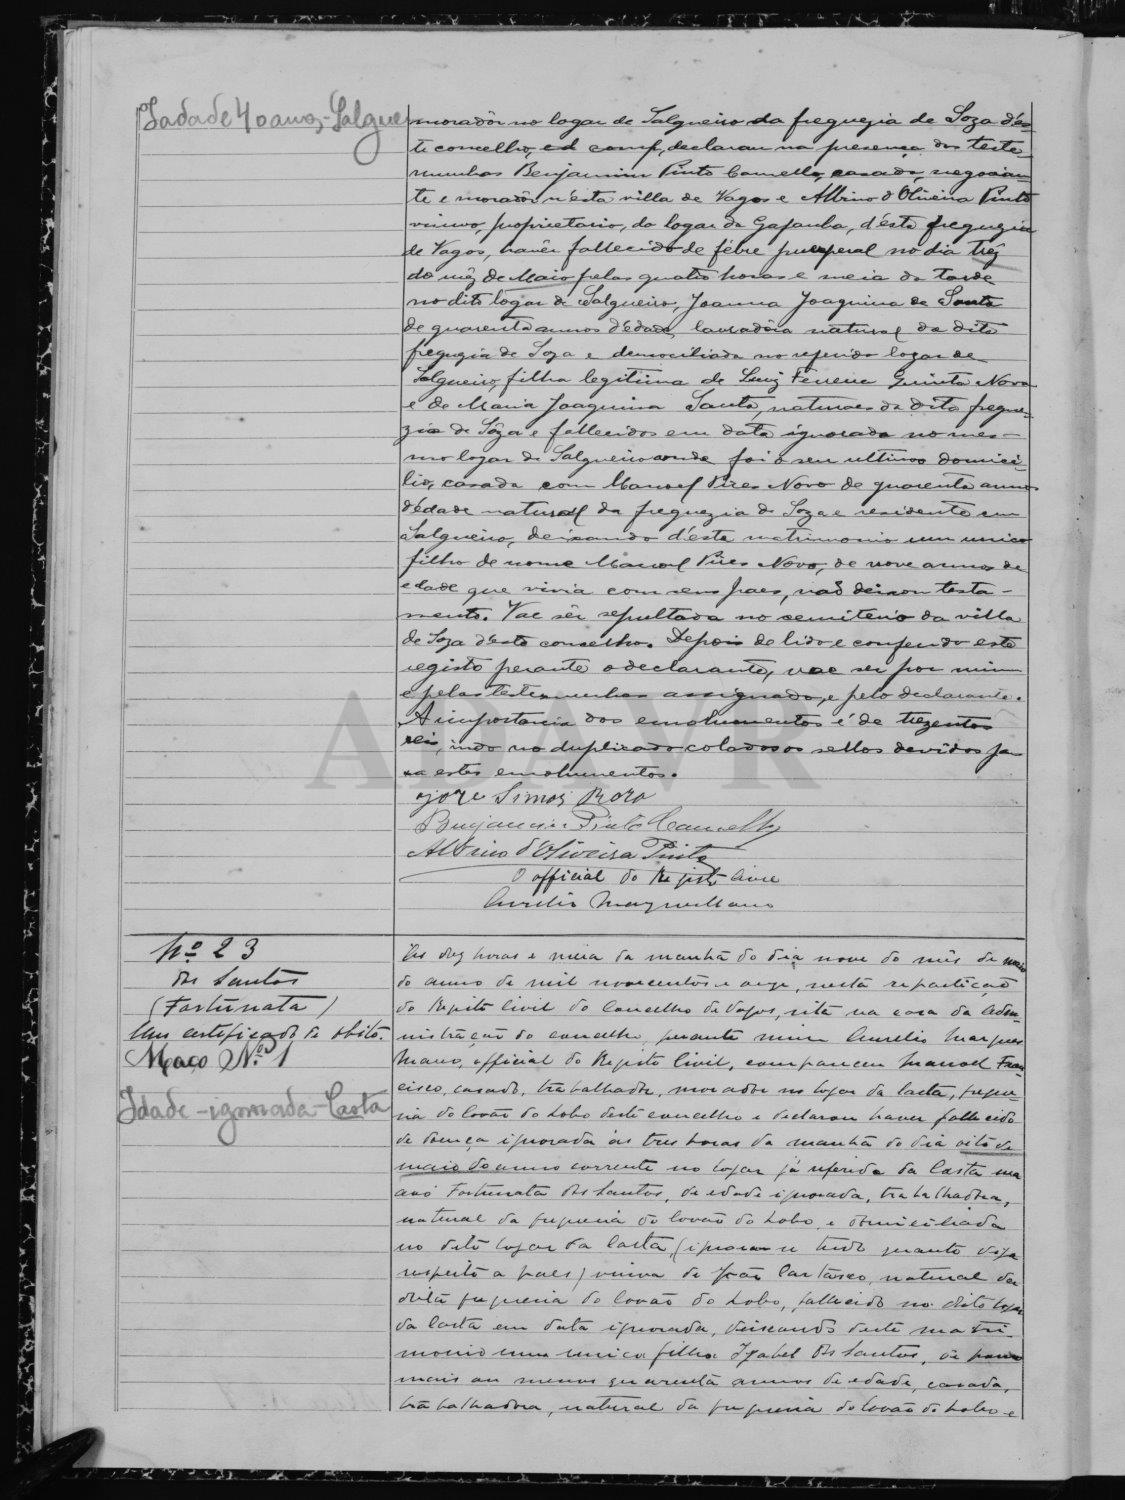 Idade 40 annos - Salgueiro
moradôr no logar de Salgueiro da freguezia de Soza d'es-
te concelho, declarau na presença das teste-
munhas Benjamim Pinto Camello, casado, negocian-
te e moradôr n'ésta villa de Vagos e Albino d'Oliveira Pinto
viuvo, proprietario, do logar da Gafanha, d'ésta freguezia
de Vagos, havêr fallecido de fébre puerperal no dia trêz
do mêz de Maio pelas quatro horas e meia da tarde
no dito lógar de Salgueiro, Joanna Joaquina de Santa
de quarenta annos d'édade, lavradôra natural da dita
freguezia de Soza e domociliada no referido logar de
Salgueiro, filha legitima de Luiz Quinta Nova
e de Maria Joaquina Santa, naturaes da dita fregue-
zia de Sôza e fallecidos em data ignorada no mes-
mo logar de Salgueiro aonde foi o seu ultimo domici-
lio, casada com Manoel Pires Novo de quarenta annos
d'édade natural da freguezia de Soza e residente em
Salgueiro, deixando d'éste matrimonio um unico
filho de nome Manoel Pires Novo, de nove annos de
edade que vivia com seus paes, não deixou testa-
mento. Vae sêr sepultada no cemiterio da villa
de Soza d'este concelho. Depois de lido e conferido este
registo perante o declarante, vae ser por mim
e pelas testemunhas assignado, e pelo declarante.
A importancia dos emolumentos é de trezentos
reis, indo no duplicado colados os sellos devidos pa-
ra estes emolumentos.
José Simões
Benjamim Pinto Camello
Albino d'Oliveira Pinto
O official do Registo Civil
Aurelio Marques Mano
Nº 23
dos Santos
(Fortunata)
Um certificado de obito.
Maço Nº 1
Idade - ignorada - Casta
Ás dez horas e meia da manhã do dia nove do mês de maio
do anno de mil novecentos e onze, nesta repartição
do Registo Civil do Concelho de Vagos, sita na casa da Admi-
nistração do concelho, perante mim Aurelio Marques
Mano, official do Registo Civil, compareceu Manoel Fran-
cisco, casado, trabalhador, morador no logar da Casta, fregue-
zia do Covão do Lobo deste concelho e declarou haver fallecido
de doença ignorada ás tres horas da manhã do dia oito de
maio do anno corrente no logar já referido da Casta sua
avó Fortunata dos Santos, de edade ignorada, trabalhadora,
natural da freguezia do Covão do Lobo, e domiciliada
no dito logar da Casta, (ignora-se tudo quanto diga
respeito a paes) viuva de João, natural da
dita freguezia do Covão do Lobo, fallecido no dito logar
da Casta em data ignorada, deixando deste matri-
monio uma unica filha Izabel dos Santos, de pouco
mais ou menos quarenta annos de edade, casada,
trabalhadora, natural da freguezia do Covão do Lobo e
ADAVR